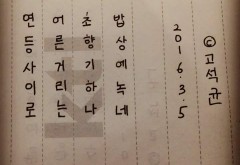 연등사이로
어른거리는
초향기하나
밥상예녹네
2016.3.5
©고석균